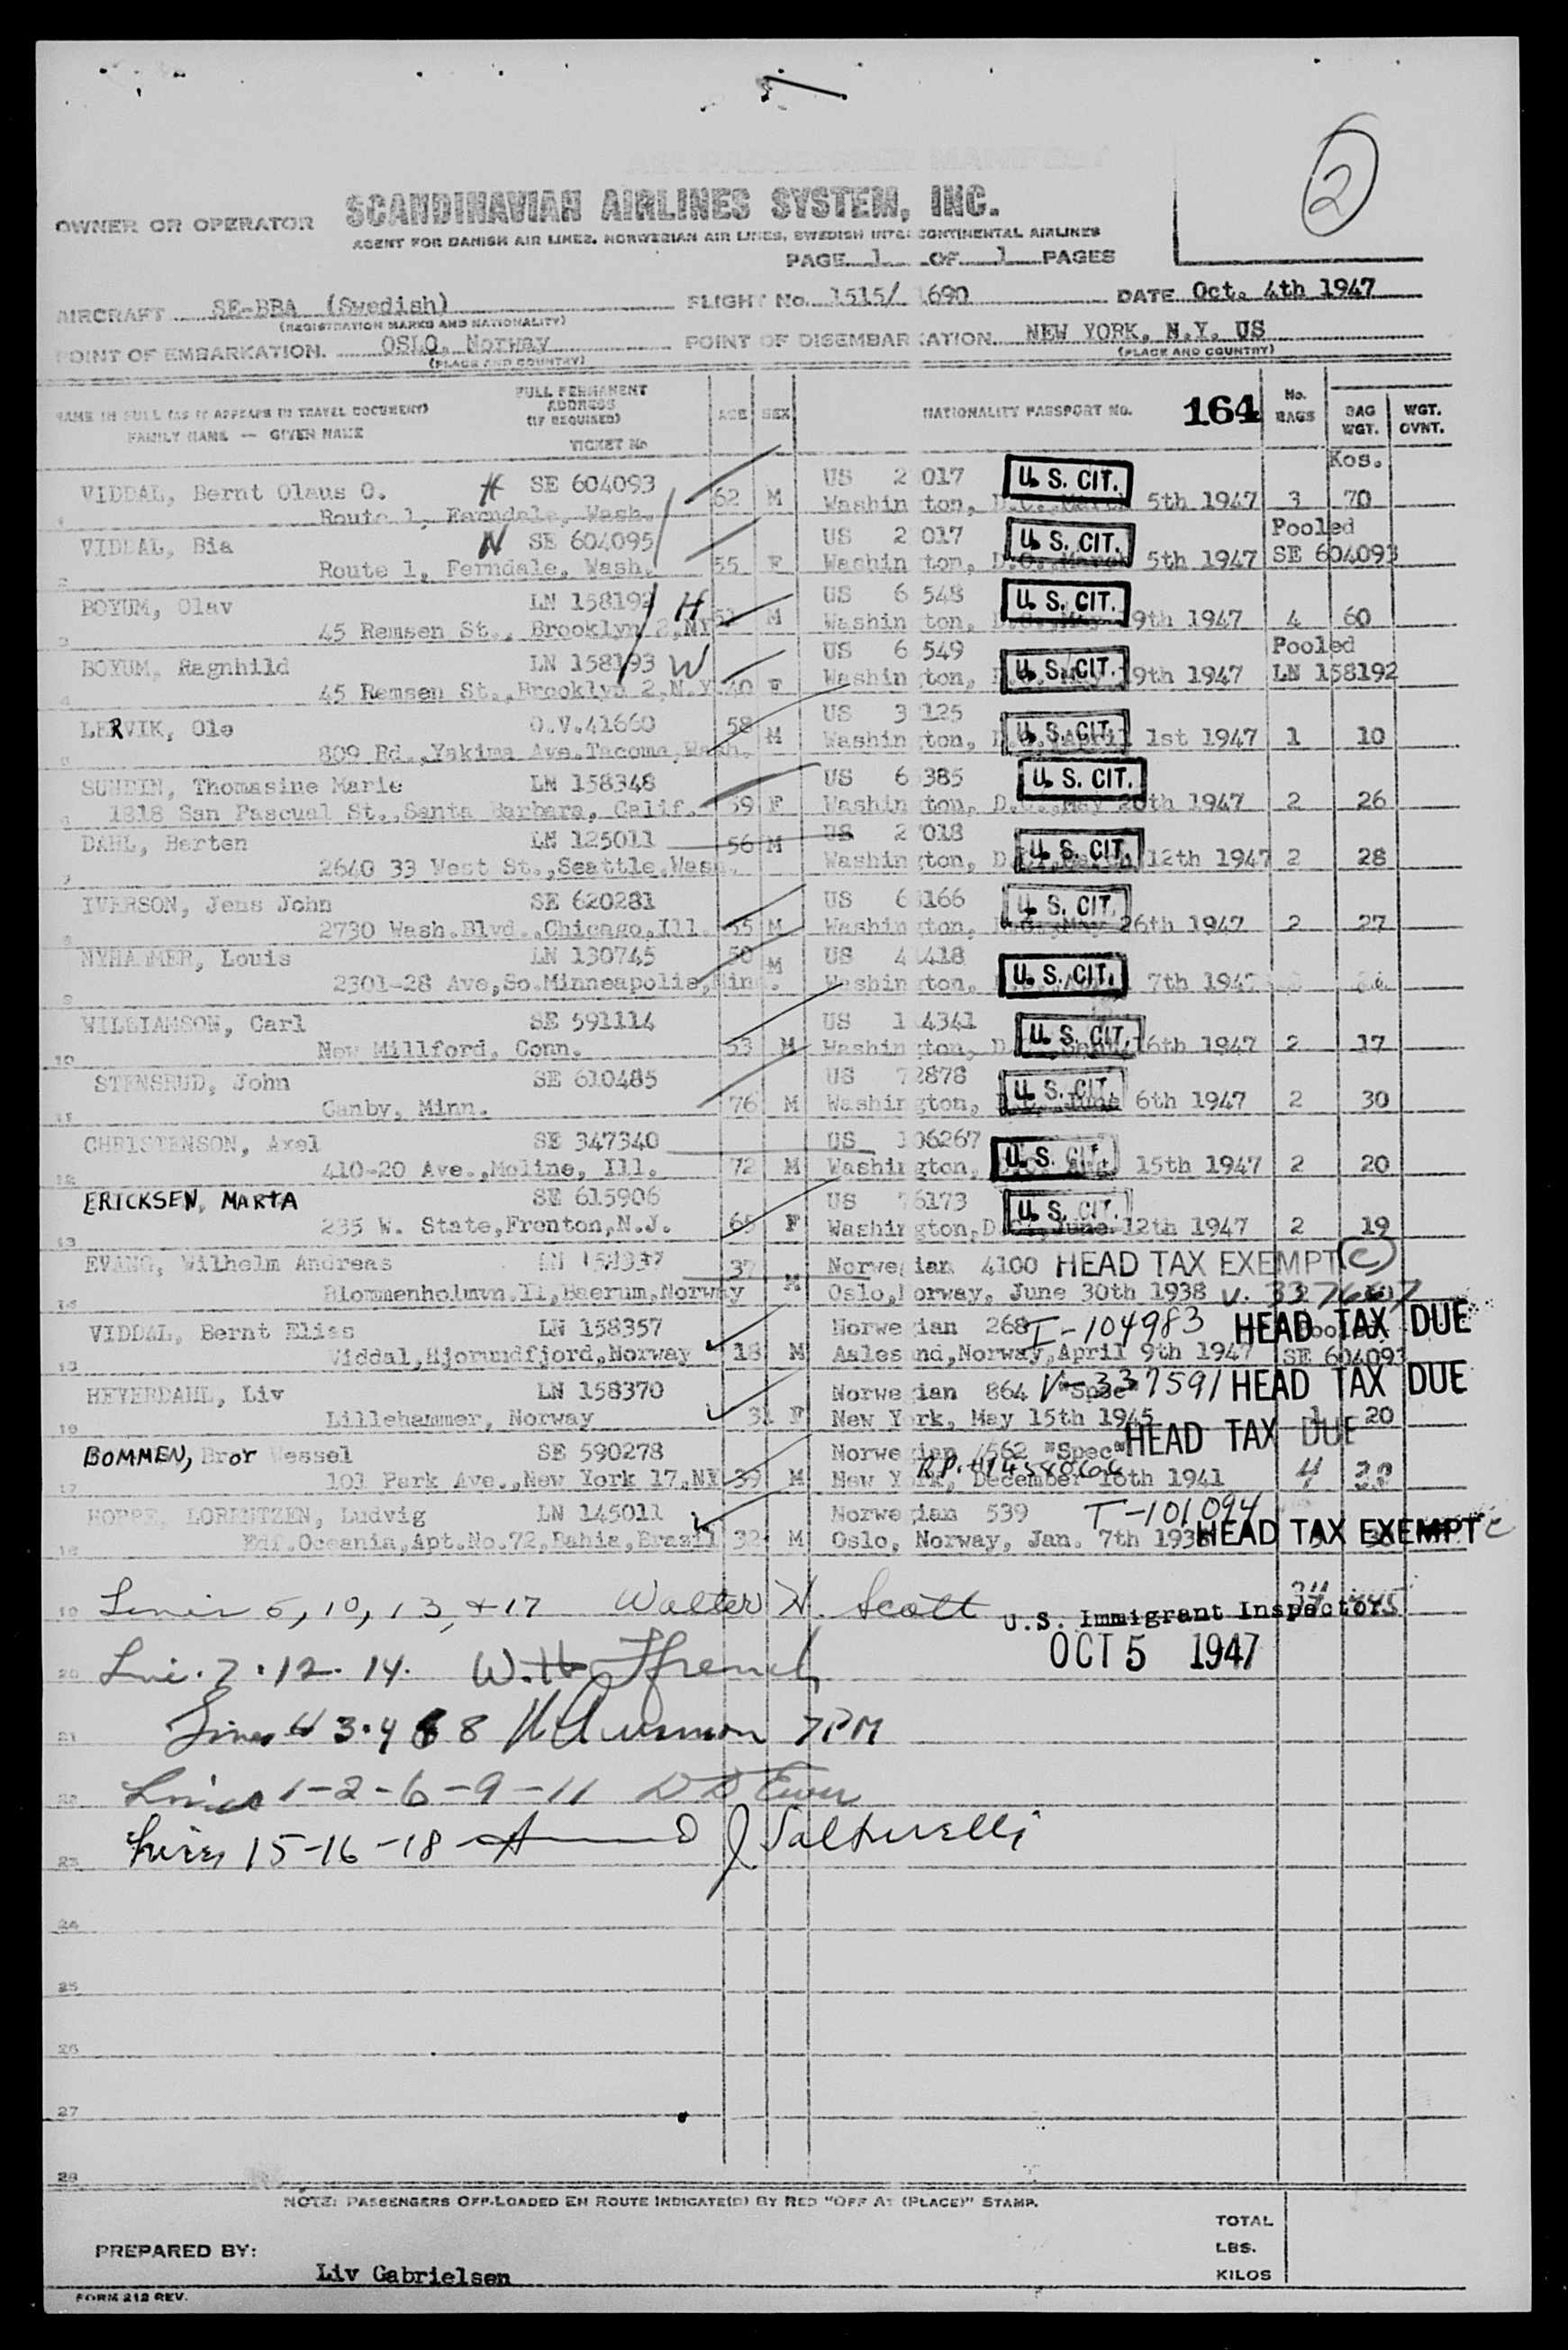 2
OWNER OR OPERATOR SCANDINAVIAN AIRLINES SYSTEM, INC.
AGENT FOR DANISH AIR LINES, NORWEGIAN AIR LINES, SWEDISH INTERCONTINENTAL AIRLINES
PAGE 1 OF 1 PAGES
AIRCRAFT SE-BBA (Swedish) FLIGHT No. 1515/ 1690 DATE Oct. 4th 1947
(REGISTRATION MARKS AND NATIONALITY)
POINT OF EMBARKATION. OSLO, Norway POINT OF DISEMBARKATION. NEW YORK, N.Y. US
(PLACE AND COUNTRY) (PLACE AND COUNTRY)
NAME IN FULL (AS IT APPEARS IN TRAVEL DOCUMENT)
FAMILY NAME — GIVEN NAME
FULL PERMANENT ADDRESS (IF REQUIRED)
TICKET No
AGE SEX NATIONALITY PASSPORT NO. 164 No. BAGS BAG WGT. WGT. OVNT.
Kos.
VIDDAL, Bernt Olaus O. H SE 604093 US 2 017 U. S. CIT.
1 Route 1, Ferndale, Wash. 62 M Washington, D.C., March 5th 1947 3 70
VIDDAL, Bia W SE 604095 US 2 017 U. S. CIT. Pooled
2 Route 1, Ferndale, Wash. 55 F Washington, D.C., March 5th 1947 SE 604093
BOYUM, Olav LN 158192 H US 6 548 U. S. CIT.
3 45 Remsen St., Brooklyn 2,NY M Washington, 9th 1947 4 60
BOYUM, Ragnhild LN 158193 W US 6 549 U. S. CIT. Pooled
4 45 Remsen St.,Brooklyn 2,N.Y. 40 F Washington, 9th 1947 LN 158192
LERVIK, Ole O.V.41660 58 M US 3 125 U. S. CIT.
5 809 Rd.,Yakima Ave.Tacoma,Wash. Washington, D.C.,April 1st 1947 1 10
SUNDIN, Thomasine Marie LN 158348 US 6 385 U. S. CIT.
6 1818 San Pascual St.,Santa Barbara, Calif. 59 F Washington, D.C.,May 20th 1947 2 26
DAHL, Berten LN 125011 56 M US 2 018 U. S. CIT.
7 2640 33 West St.,Seattle,Wash. Washington, D.C.,March 12th 1947 2 28
IVERSON, Jens John SE 620281 US 6 166 U. S. CIT.
8 2730 Wash.Blvd.,Chicago,Ill. 55 M Washington, D.C.,May 26th 1947 2 27
NYHAMMER, Louis LN 130745 50 M US 4 418 U. S. CIT.
9 2301-28 Ave,So.Minneapolis,Minn. Washington, 7th 1947
WILLIAMSON, Carl SE 591114 US 1 4341 U. S. CIT.
10 New Millford, Conn. 53 M Washington, D.C., 6th 1947 2 17
STENSRUD, John SE 610485 US 72878 U. S. CIT.
11 Canby, Minn. 76 M Washington, D.C., June 6th 1947 2 30
CHRISTENSON, Axel SE 347340 US 106267 U. S. CIT.
12 410-20 Ave.,Moline, Ill. 72 M Washington, 15th 1947 2 20
ERICKSEN, MARTA SE 615906 US 76173 U. S. CIT.
13 235 W. State,Frenton,N.J. 65 F Washington,D.C.,June 12th 1947 2 19
EVANG, Wilhelm Andreas LN 158337 37 M Norwegian 4100 HEAD TAX EXEMPT (c)
14 Blommenholmvn.11,Baerum,Norway Oslo,Norway, June 30th 1938 V. 337667
VIDDAL, Bernt Elias LN 158357 Norwegian 268 I-104983 HEAD TAX DUE Pooled
15 Viddal,Hjorundfjord,Norway 18 M Aalesund,Norway,April 9th 1947 SE 604093
HEYERDAHL, Liv LN 158370 Norwegian 864 "Spec" V-337591 HEAD TAX DUE
16 Lillehammer, Norway 31 F New York, May 15th 1945 1 20
BOMMEN, Bror Wessel SE 590278 Norwegian 4562 "Spec" HEAD TAX DUE
17 101 Park Ave.,New York 17,NY 39 M New York, December 16th 1941 4
HOPPE LORENTZEN, Ludvig LN 145011 Norwegian 539 T-101094
18 Edf.Oceania,Apt.No.72,Bahia,Brazil 32 M Oslo, Norway, Jan. 7th 1938 HEAD TAX EXEMPT c
19 Lines 5, 10, 13, + 17 Walter H. Scott U.S. Immigrant Inspector
20 Line. 7. 12. 14. W. H. Ffrench OCT 5 1947
21 Lines 3. 4 8 7 PM
22 Lines 1-2-6-9-11
23 Lines 15-16-18 J Salturelli
24
25
26
27
28
NOTE: PASSENGERS OFF-LOADED EN ROUTE INDICATE(D) BY RED "OFF AT (PLACE)" STAMP.
TOTAL
LBS.
KILOS
PREPARED BY: Liv Gabrielsen
FORM 212 REV.